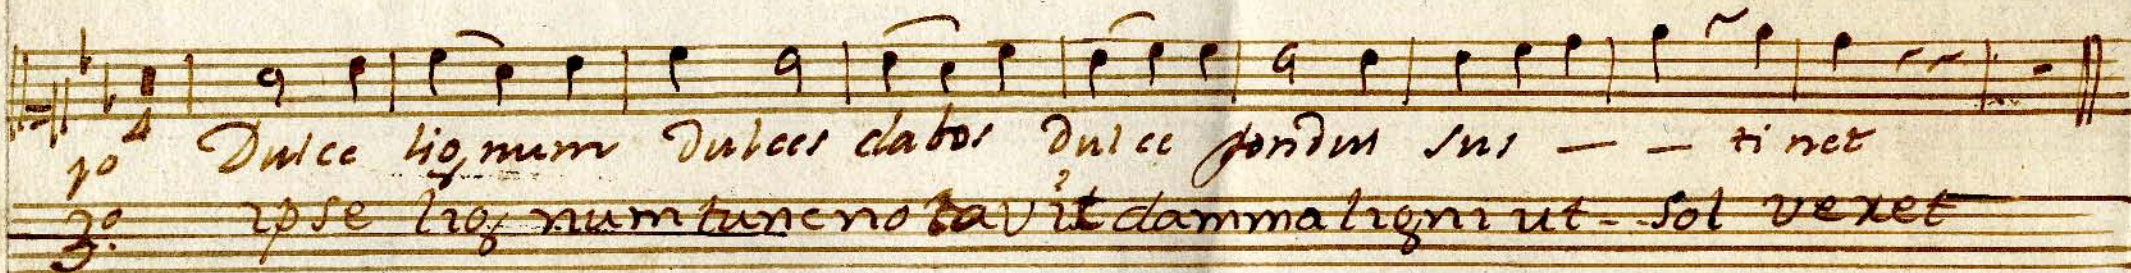 1º Dulce lignum Dulces clabos Dulce pondus sus - - tinet
3º. ipse lignum tunc notavit damma ligni ut - - sol vexet